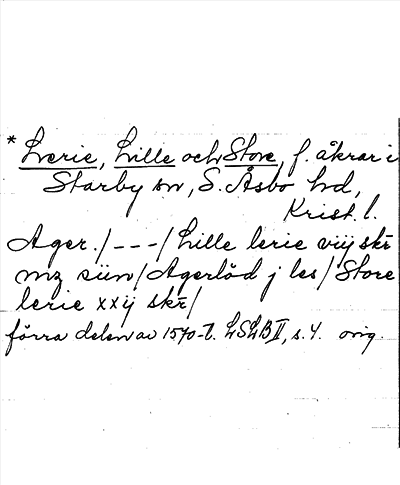 * Lverie, Lille och Store, f. åkrar i
Starby sn, S. Åsbo hd,
Krist. l.
Ager./---/Lille lerie viij skr
mz siin/Agerlöd j les/Store
lerie xxij skr/
förra delen av 1570-t. LSLB II, s. 4. orig.